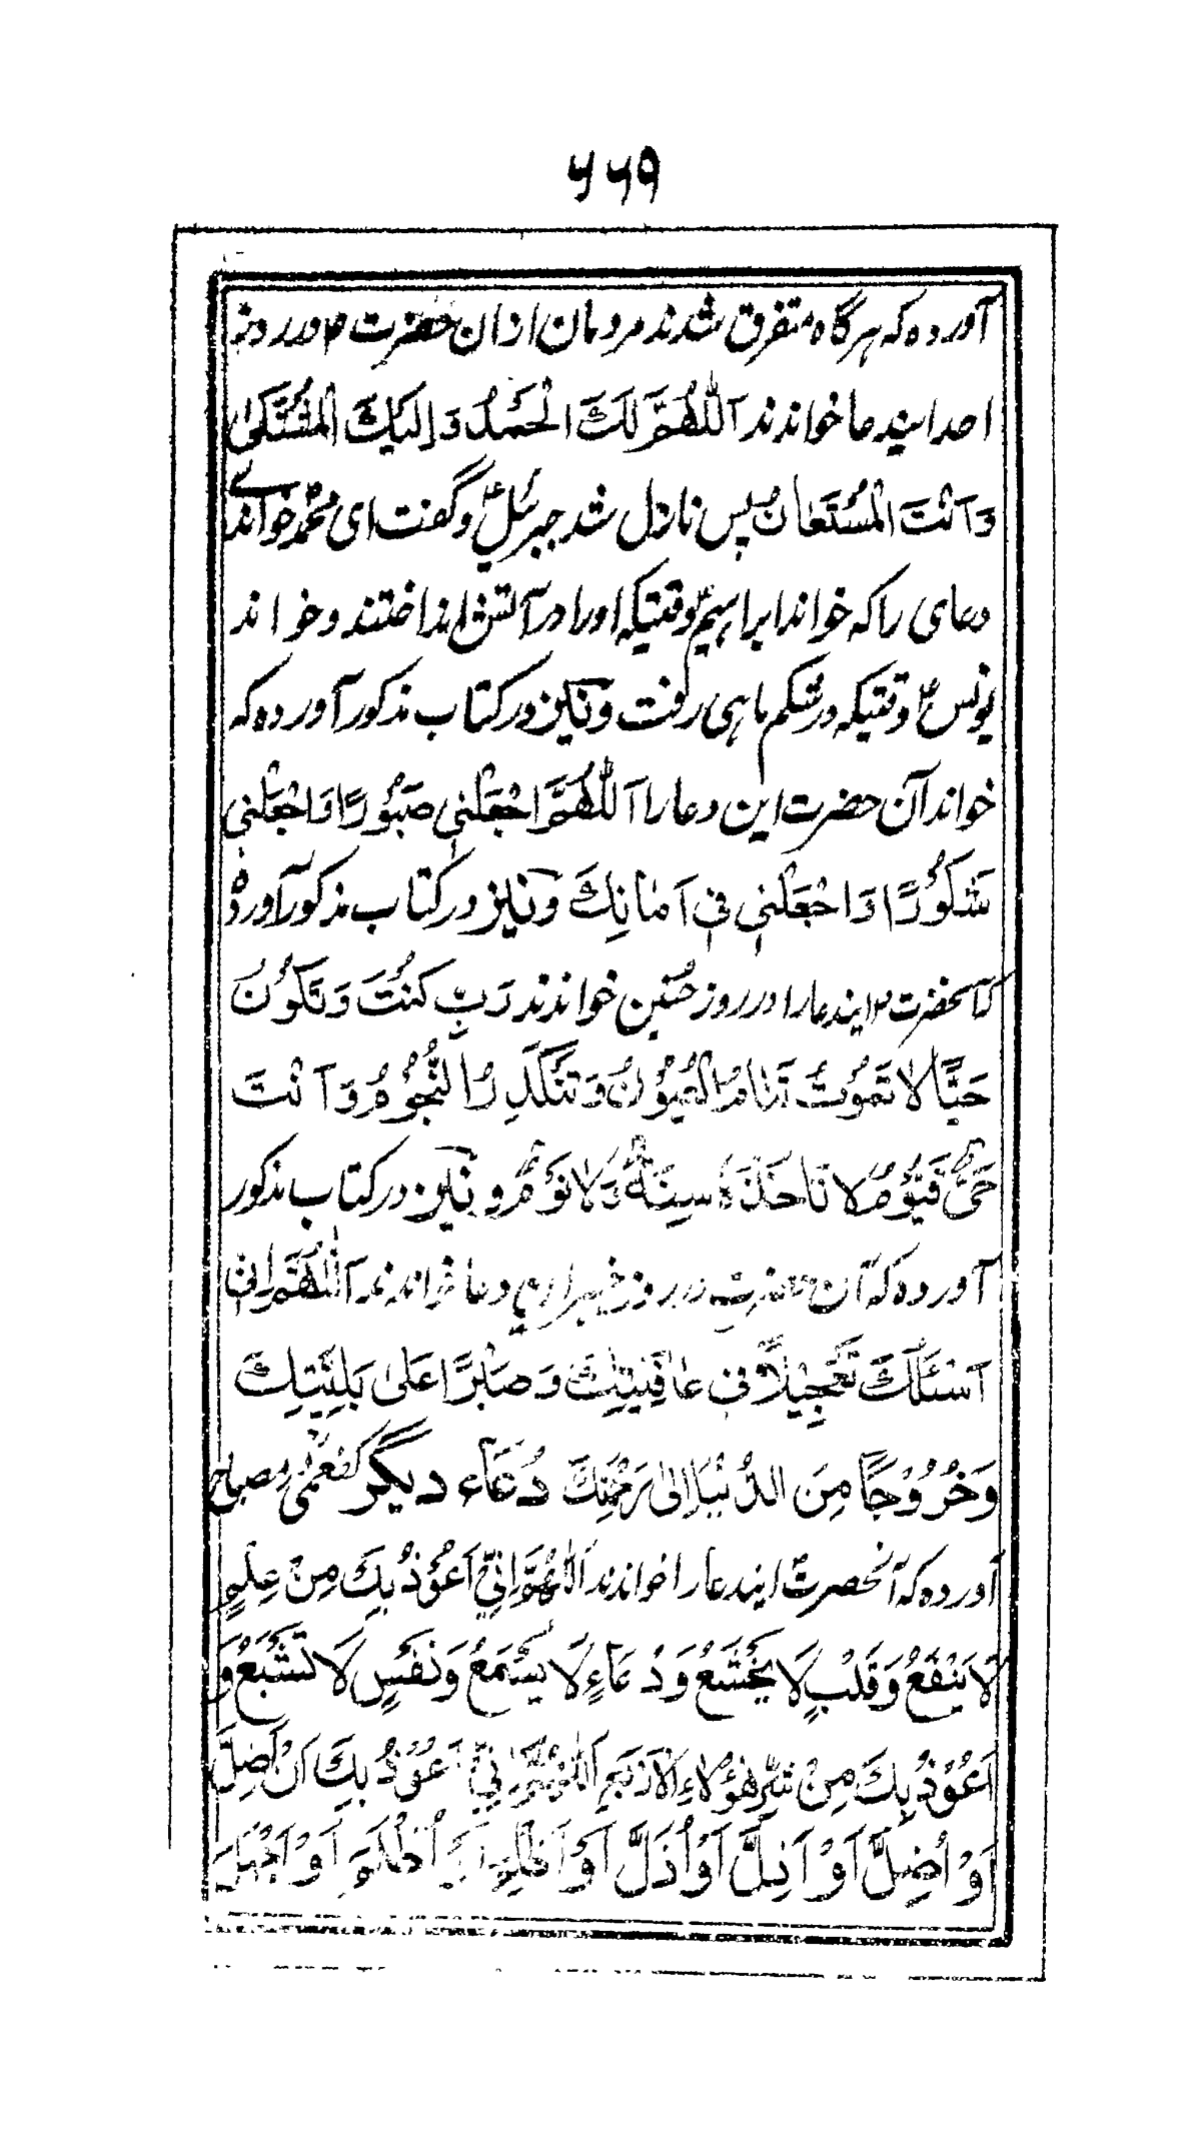 ۴۶۹
آورده که هرگاه متفرق شدند مردمان ازان حضرت ص در روز
احد ایندعا خواندند اَللّٰهُمَّ لَكَ الْحَمْدُ وَاِلَيْكَ الْمُشْتَكٰى
وَاَنْتَ الْمُسْتَعَانُ پس نازل شد جبرئیل ع وگفت ای محمد خواندے
دعای راکه خواند ابراهیم ع وقتیکه اورا در آتش انداختند وخواند
یونس ع وقتیکه در شکم ماهی رفت ونیز در کتاب مذکور آورده که
خواند آن حضرت این دعا را اَللّٰهُمَّ اجْعَلْنِي صَبُوْرًا وَاجْعَلْنِي
شَكُوْرًا وَاجْعَلْنِي فِي اَمَانِكَ ونیز در کتاب مذکور آورده
که آنحضرت ص ایندعا را در روز حنین خواندند رَبِّ كُنْتَ وَتَكُوْنُ
حَيًّا لَا تَمُوْتُ تَنَامُ الْعُيُوْنُ وَتَنْكَدِرُ النُّجُوْمُ وَاَنْتَ
حَيٌّ قَيُّوْمٌ لَا تَأْخُذُهُ سِنَةٌ وَلَا نَوْمٌ ونیز در کتاب مذکور
آورده که آن حضرت در روز خیبر این دعا خواندند اَللّٰهُمَّ اِنِّي
اَسْئَلُكَ تَعْجِيْلًا فِي عَافِيَتِكَ وَصَبْرًا عَلٰى بَلِيَّتِكَ
وَخُرُوْجًا مِنَ الدُّنْيَا اِلٰى رَحْمَتِكَ دُعَاء دیگر کفعمی در مصباح
آورده که آنحضرت ایندعا را خواندند اَللّٰهُمَّ اِنِّيْ اَعُوْذُ بِكَ مِنْ عِلْمٍ
لَا يَنْفَعُ وَقَلْبٍ لَا يَخْشَعُ وَدُعَاءٍ لَا يُسْمَعُ وَنَفْسٍ لَا تَشْبَعُ وَ
اَعُوْذُ بِكَ مِنْ شَرِّ هٰؤُلَاءِ الْاَرْبَعِ اَللّٰهُمَّ اِنِّيْ اَعُوْذُ بِكَ اَنْ اَضِلَّ
اَوْ اُضِلَّ اَوْ اَذِلَّ اَوْ اُذَلَّ اَوْ اَظْلِمَ اَوْ اُظْلَمَ اَوْ اَجْهَلَ